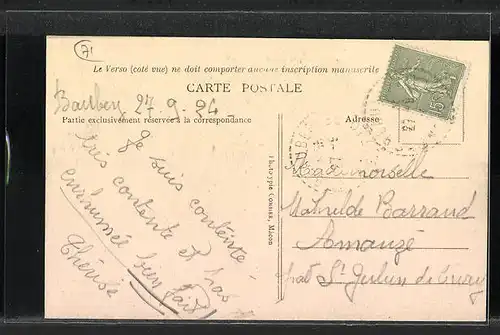 71
Le Verso (coté vue) ne doit comporter aucune inscription manuscrite
CARTE POSTALE
27-9-24
Partie exclusivement réservée à la correspondance
Adresse
Je suis contente
très contente et pas
enrhumée bien
Thérèse
Phototypie COMBIER, Macon
15
Mademoiselle
Mathilde Barraud
Amanzé
par St Julien de Civry